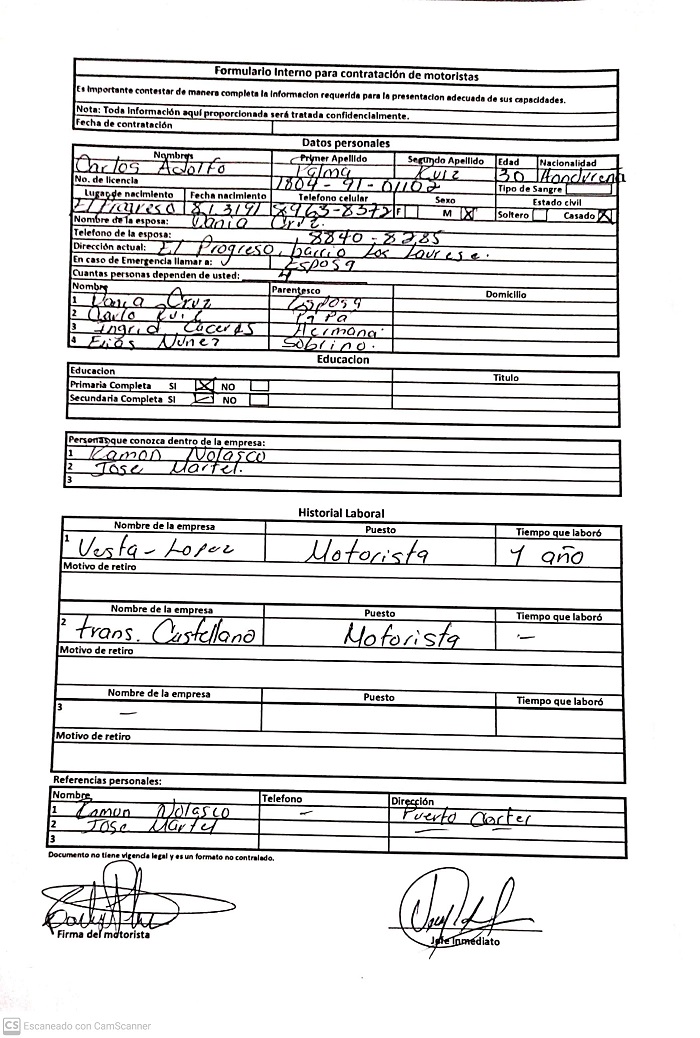 Formulario Interno para contratación de motoristas
Es importante contestar de manera completa la informacion requerida para la presentacion adecuada de sus capacidades.
Nota: Toda información aquí proporcionada será tratada confidencialmente.
Fecha de contratación
Datos personales
Nombres Primer Apellido Segundo Apellido Edad Nacionalidad
Carlos Adolfo Palma Ruiz 30 Hondureña
No. de licencia 1804-91-01102 Tipo de Sangre
Lugar de nacimiento Fecha nacimiento Telefono celular Sexo Estado civil
El Progreso 8/3/91 8963-8372 F M X Soltero Casado X
Nombre de la esposa: Vania Cruz.
Telefono de la esposa: 8840-8285
Dirección actual: El Progreso, barrio Los
En caso de Emergencia llamar a: Esposa
Cuantas personas dependen de usted: 4
Nombre Parentesco Domicilio
1 Vania Cruz Esposa
2 Carlo Ruiz Papá
3 Ingrid Caceres Hermana.
4 Elias Nuñez Sobrino.
Educacion
Educacion Titulo
Primaria Completa SI X NO
Secundaria Completa SI NO
Personas que conozca dentro de la empresa:
1 Ramon Nolasco
2 Jose Martel.
3
Historial Laboral
Nombre de la empresa Puesto Tiempo que laboró
1 Vesta - Lopez Motorista 1 año
Motivo de retiro
Nombre de la empresa Puesto Tiempo que laboró
2 trans. Castellano Motorista –
Motivo de retiro
Nombre de la empresa Puesto Tiempo que laboró
3 –
Motivo de retiro
Referencias personales:
Nombre Telefono Dirección
1 Ramon Nolasco – Puerto Cortes
2 Jose Martel
3
Documento no tiene vigencia legal y es un formato no contralado.
Firma del motorista Jefe inmediato
CS Escaneado con CamScanner